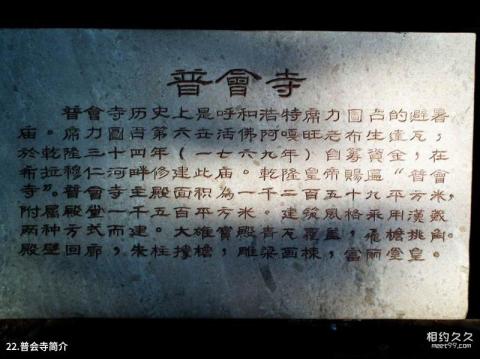 普會寺
普會寺历史上是呼和浩特席力圖占的避暑
庙。席力圖百第六丗活佛阿嘎旺老布生達瓦，
於乾隆三十四年（一七六九年）自筹資金，在
布拉穆仁河畔修建此庙。乾隆皇帝賜匾“普會
寺”。普會寺主殿面積為一千二百五十九平方米，
附属殿堂一千五百平方米。建筑風格乘用漢藏
两种方式而建。大雄寳殿青瓦覆盖，飛檐挑角。
殿壁回廊，朱柱撑檐，雕梁画棟，富丽堂皇。
22.普会寺简介
相约久久
meet99.com